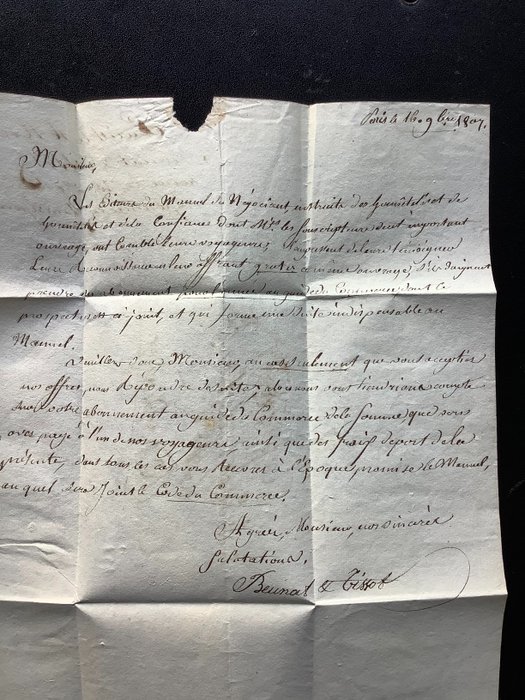 Paris le 16. 9bre 1807.
Monsieur,
Les Editeurs du Manuel du Négociant, instruits des honnêtetés et de
et de la Confiance dont MM. les Souscripteurs de cet important
ouvrage ont comblé leurs voyageurs, s'empressent de leur témoigner
Leur Reconnaissance en leur offrant gratis ce même ouvrage, s'ils daignent
prendre un abonnement pour au guide du Commerce dont le
prospectus est ci joint, et qui forme une suite indispensable au
Manuel.
Veuillez donc, Monsieur, au cas seulement que vous acceptiez
nos offres, nous Répondre de suite, alors nous vous tiendrions compte
sur votre abonnement au guide du Commerce de la Somme que vous
avez payé à l'un de nos voyageurs ainsi que des frais de port de la
présente, dans tous les cas, vous Recevrez à l'Epoque promise le Manuel,
auquel sera Joint le Code du Commerce.
Agréez, Monsieur, nos sincères
Salutations.
Beunat & Tissot